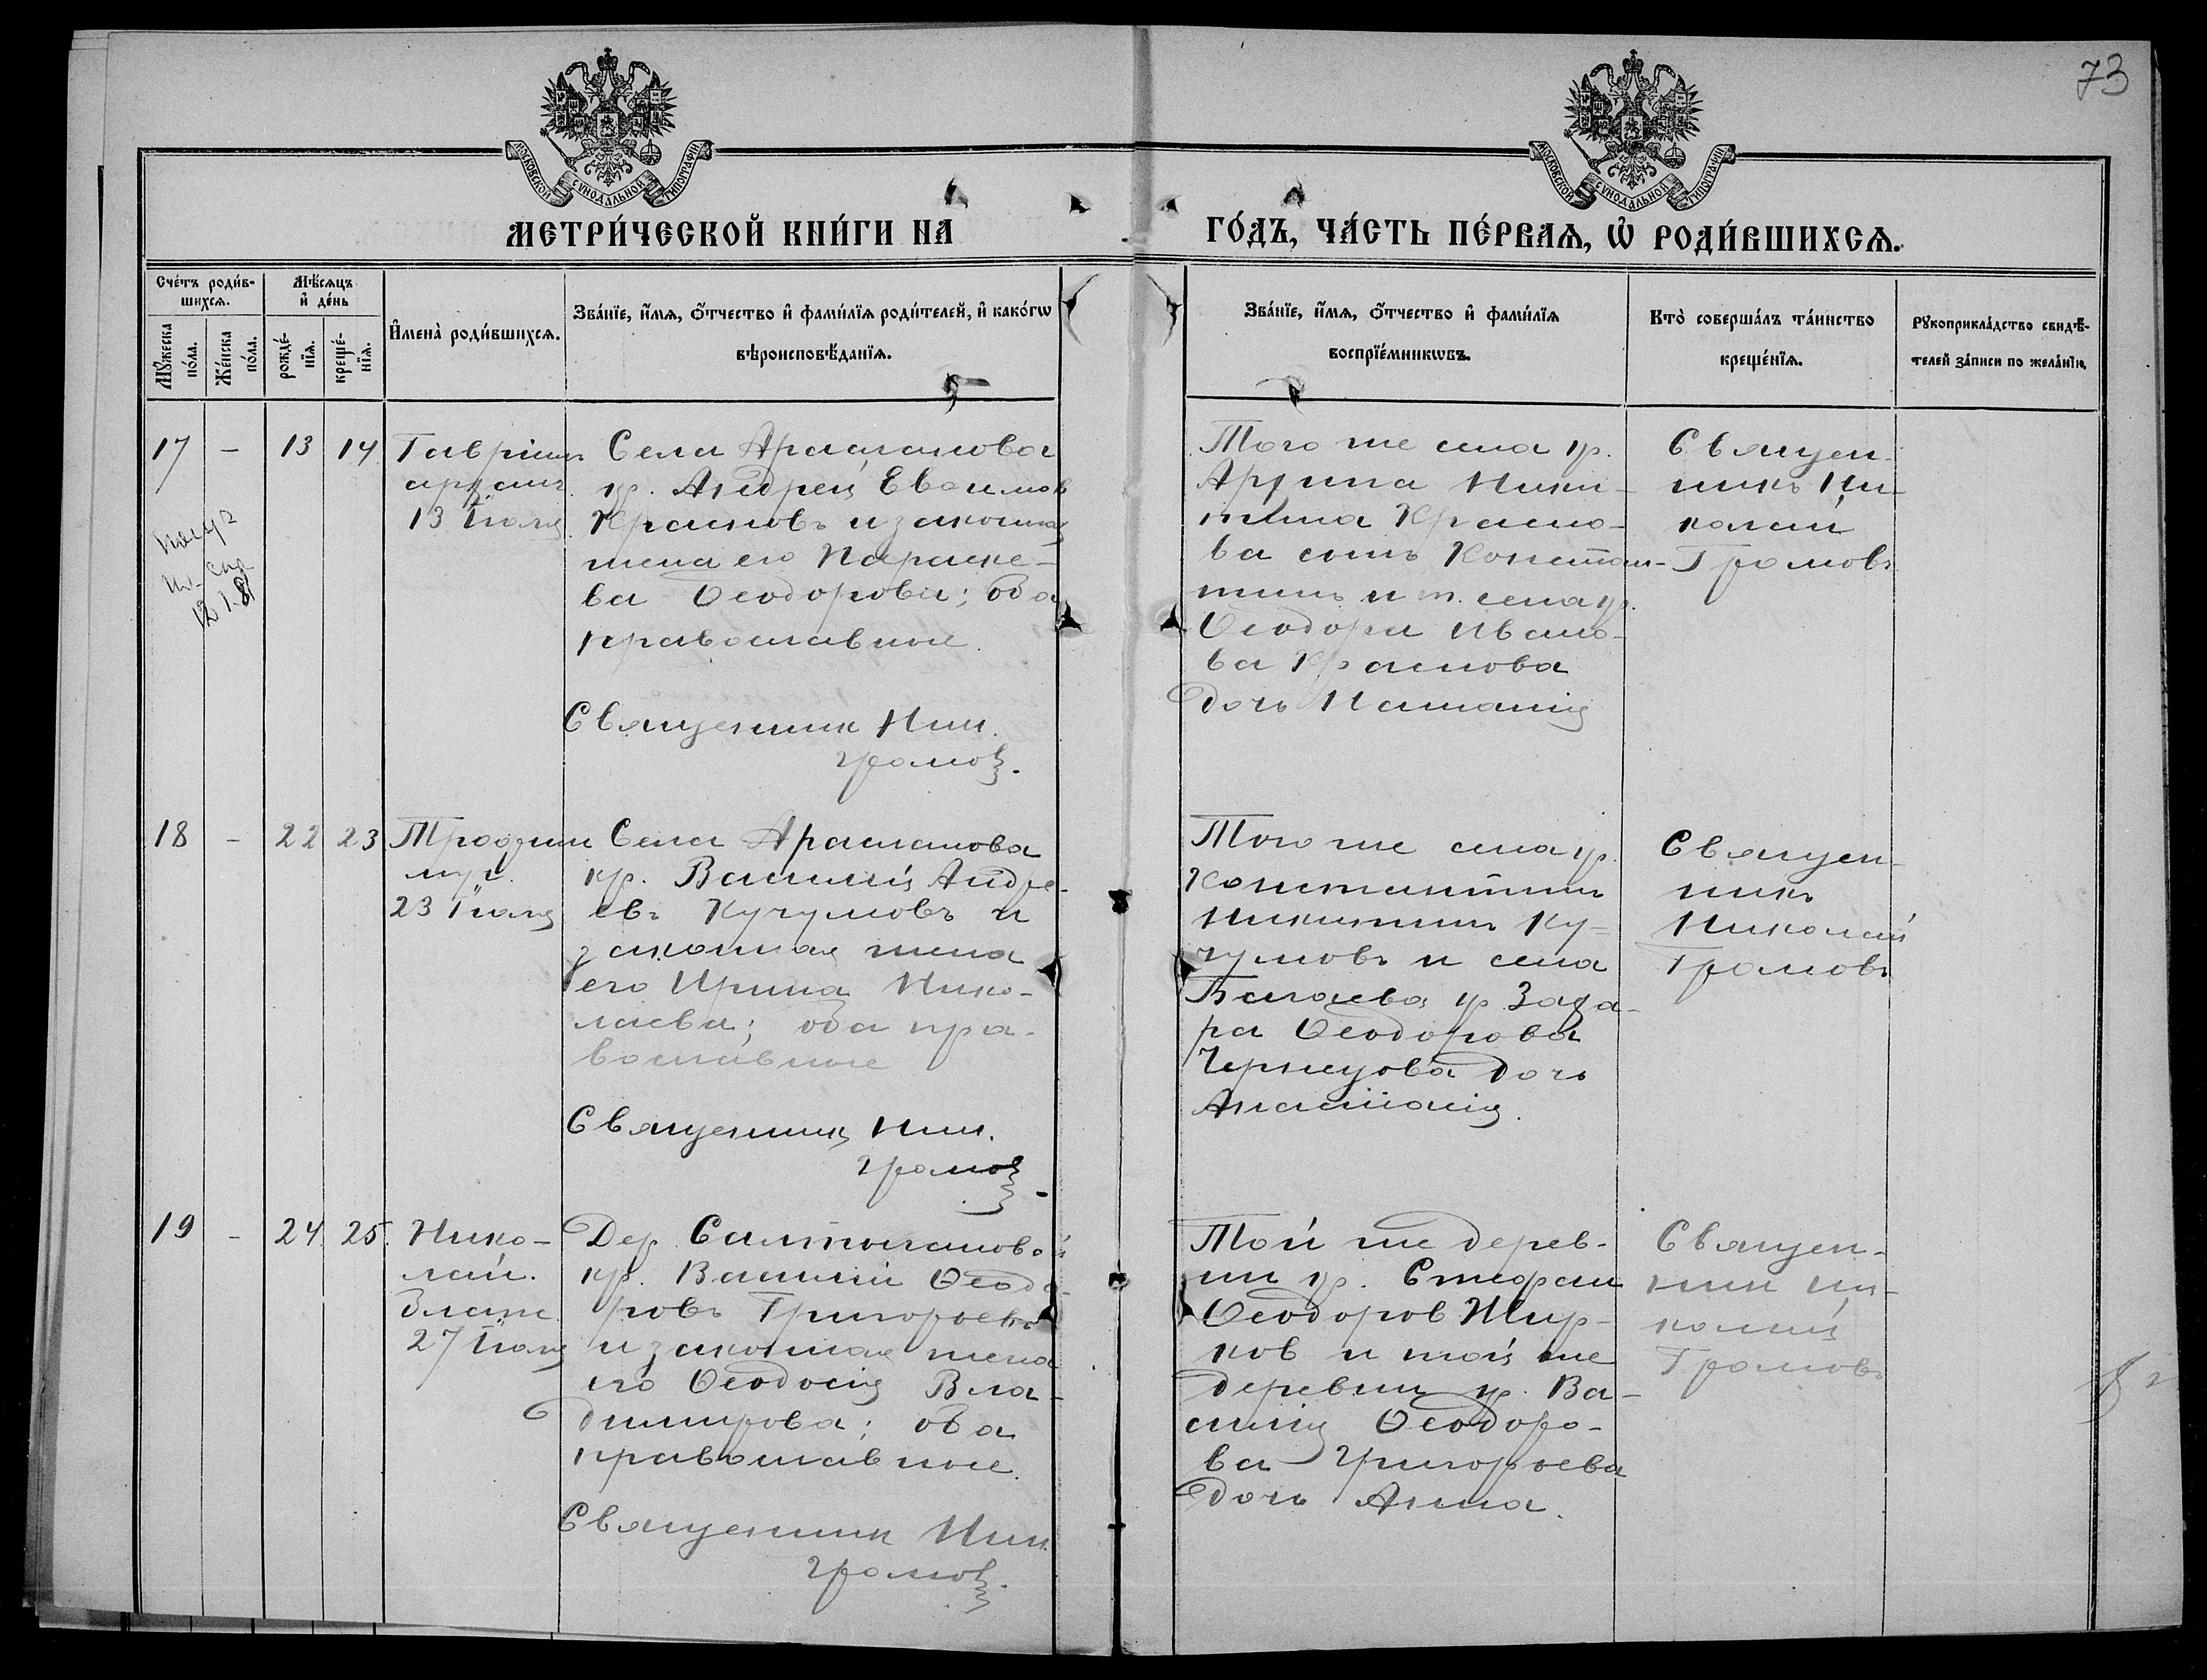 73
МОСКОВСКОЙ СѴНОДАЛЬНОЙ ТИПОГРАФІИ
МОСКОВСКОЙ СѴНОДАЛЬНОЙ ТИПОГРАФІИ
МЕТРИ́ЧЕСКОЙ КНИ́ГИ НА
ГО́ДЪ, ЧА́СТЬ ПЕ́РВАѦ, Ѡ РОДИ́ВШИХСѦ.
Сче́тъ роди́в-
шихсѧ.
Мꙋ́жеска
по́ла.
Же́нска
по́ла.
Мѣ́сѧцъ
и҆ де́нь
рожде́-
нїѧ.
креще́-
нїѧ.
И҆мена̀ роди́вшихсѧ.
Зва́нїе, и҆́мѧ, ѻ҆́тчество и҆ фами́лїѧ роди́телей, и҆ како́гѡ
вѣроисповѣ́данїѧ.
Зва́нїе, и҆́мѧ, ѻ҆́тчество и҆ фами́лїѧ
воспрїе́мникѡвъ.
Кто̀ соверша́лъ та́инство
креще́нїѧ.
Рꙋкоприкла́дство свидѣ́-
телей за́писи по жела́нїю.
17 - 13 14
Гавріилъ
арханг.
13 Іюля
12.I.81
Села Арасланова
кр. Андрей Евѳимов
Красновъ и законная
жена его Параске-
ва Ѳеодорова; оба
православные.
Священник Ник.
Громов.
Того же села кр.
Архипа Ники-
тина Красно-
ва сынъ Констан-
тинъ и т. села кр.
Ѳеодора Ивано-
ва Краснова
дочь Наталія
Священ-
никъ Ни-
колай
Громовъ
18 - 22 23
Трофим
муч.
23 Іюля
Села Арасланова
кр. Василій Андре-
евъ Кучумовъ и
законная жена
его Ирина Нико-
лаева; оба пра-
вославные
Священник Ник.
Громов.
Того же села кр.
Константинъ
Никитинъ Ку-
чумовъ и села
кр. Заха-
ра Ѳеодорова
Чернецова дочь
Анастасія.
Священ-
никъ
Николай
Громовъ
19 - 24 25.
Нико-
лай.
блаж.
27 Іюля
Дер. Салтыгановой
кр. Василій Ѳеодо-
ровъ Григорьевъ
и законная жена
его Ѳеодосія Вла-
димирова; оба
православные.
Священник Ник.
Громов.
Той же дерев-
ни кр. Стефан
Ѳеодоров Жир-
ков и той же
деревни кр. Ва-
силія Ѳеодоро-
ва Григорьева
дочь Анна.
Священ-
ник Ни-
колай
Громовъ